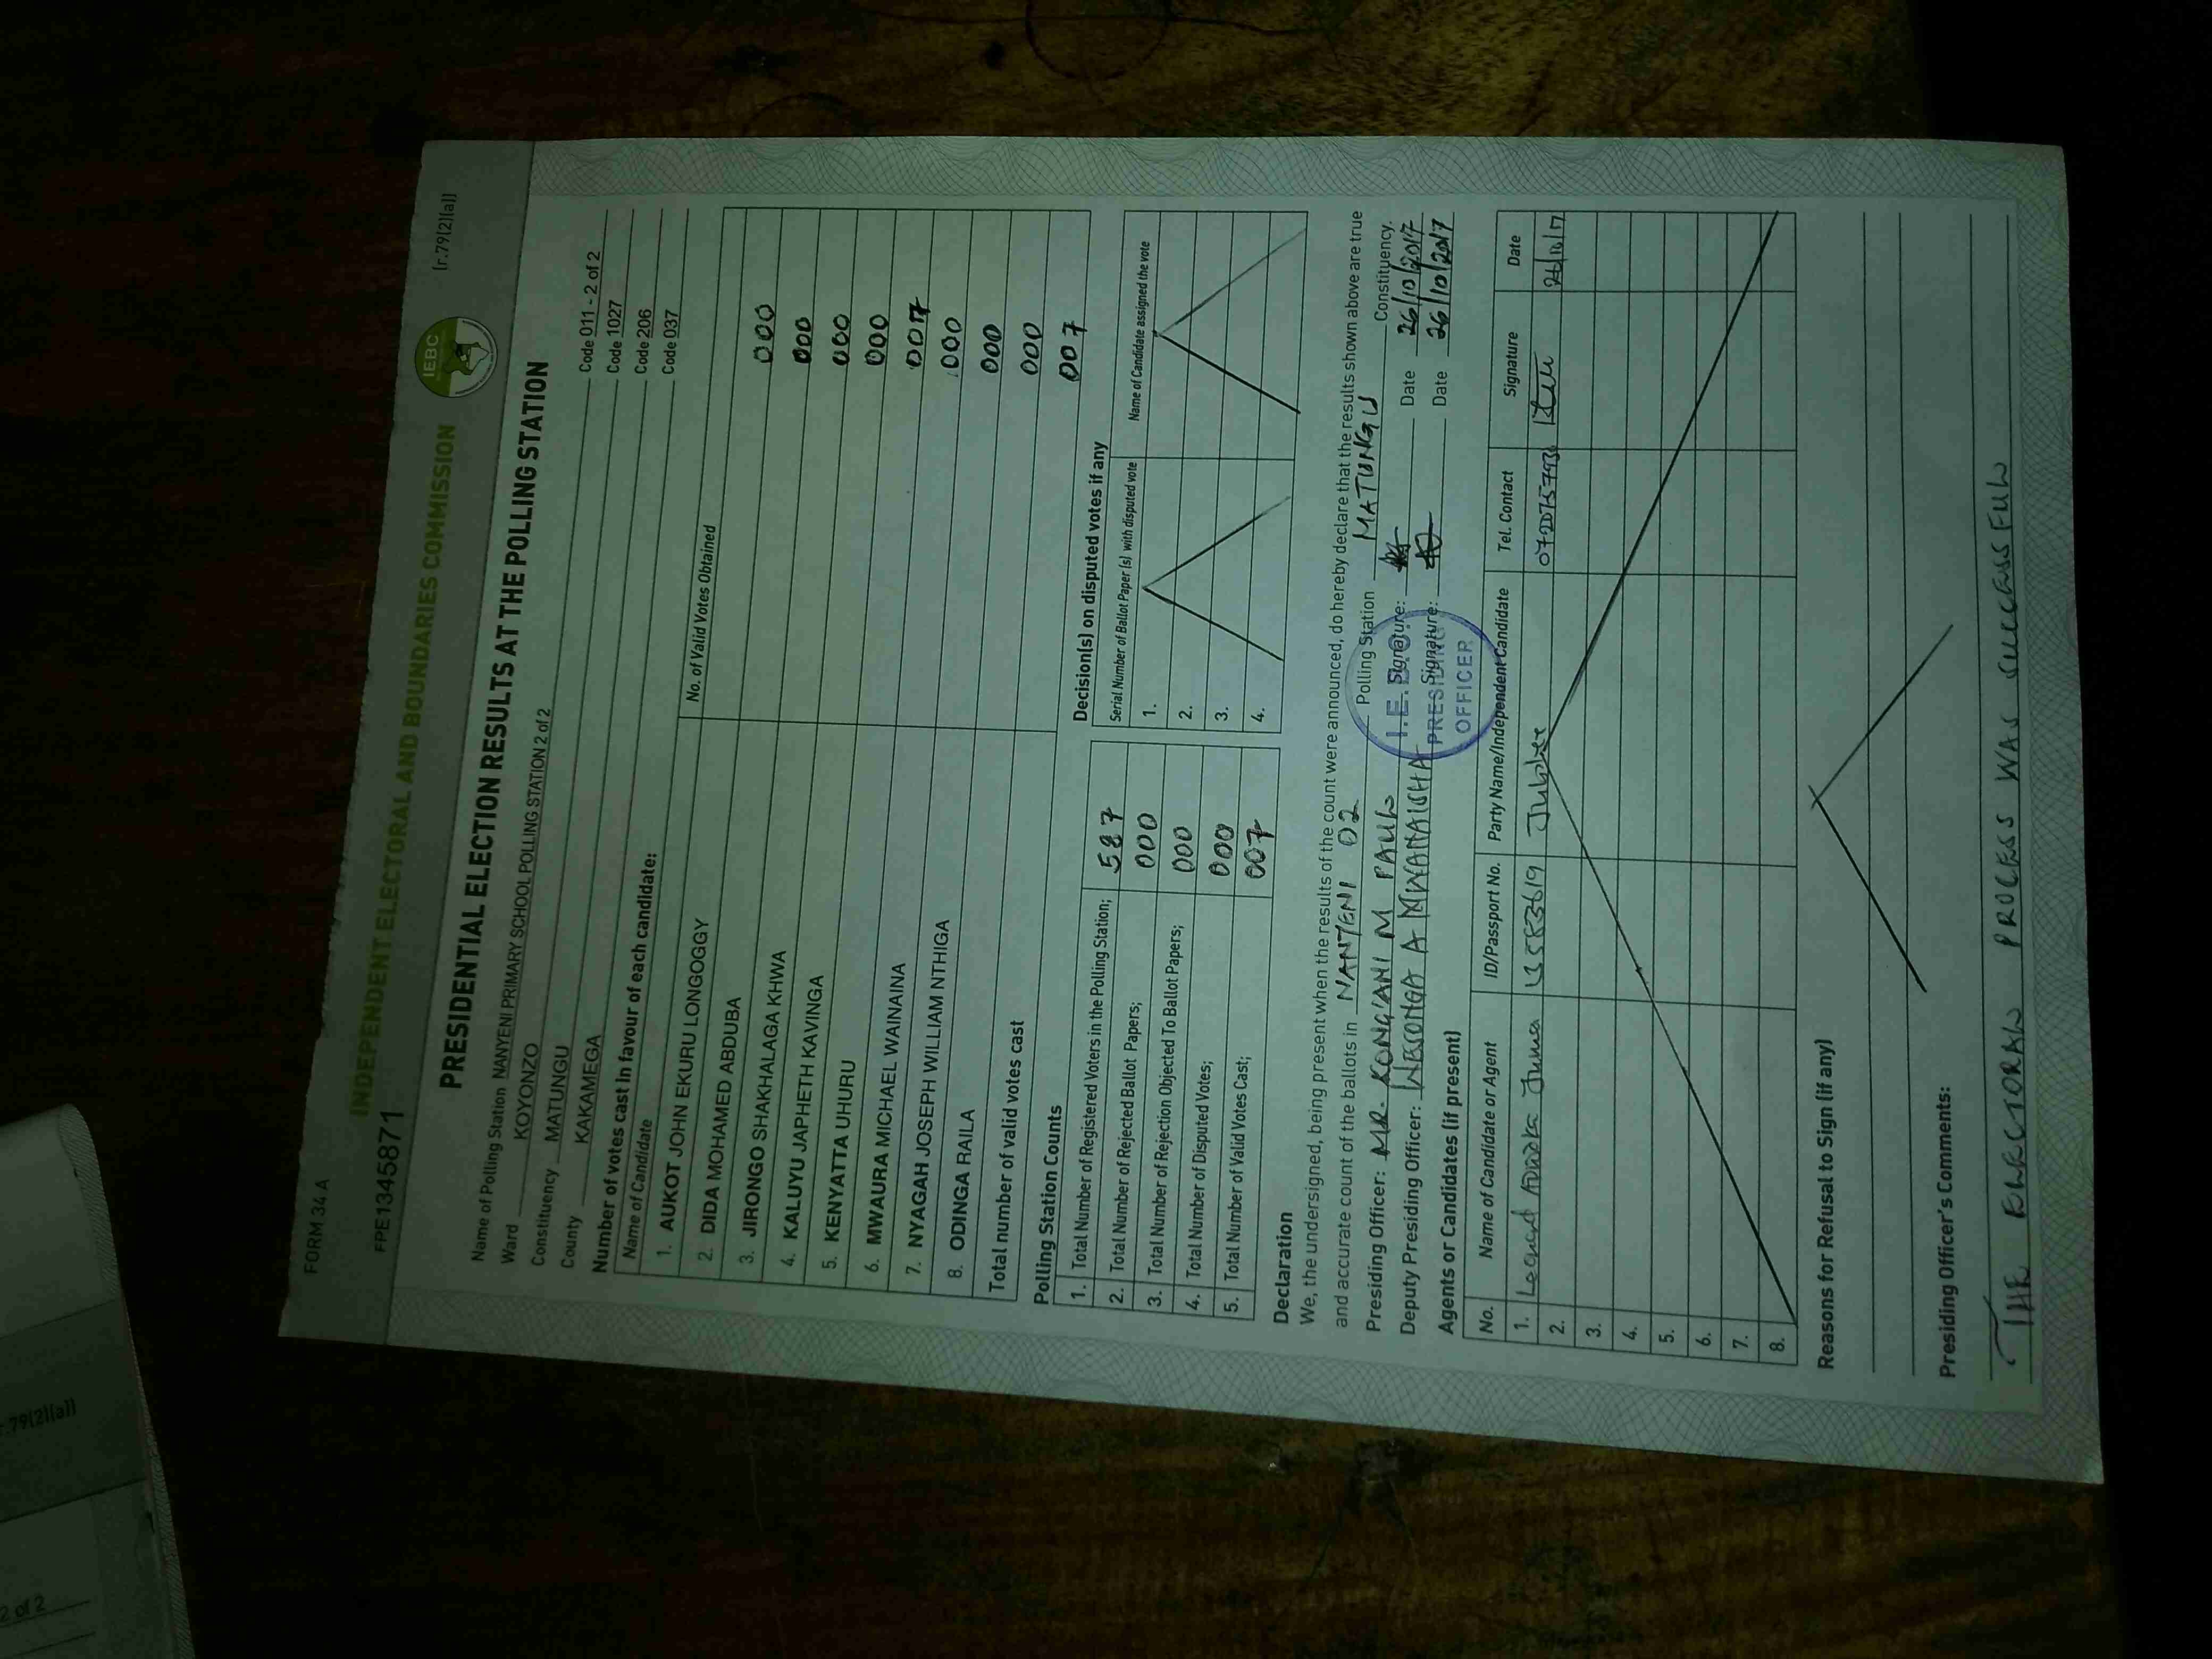 FORM 34 A
(r.79(2)(a))
INDEPENDENT ELECTORAL AND BOUNDARIES COMMISSION
IEBC
FPE1345871
PRESIDENTIAL ELECTION RESULTS AT THE POLLING STATION
Name of Polling Station NANYENI PRIMARY SCHOOL POLLING STATION 2 of 2 Code 011 - 2 of 2
Ward KOYONZO Code 1027
Constituency MATUNGU Code 206
County KAKAMEGA Code 037
Number of votes cast in favour of each candidate:
Name of Candidate No. of Valid Votes Obtained
1. AUKOT JOHN EKURU LONGOGGY 000
2. DIDA MOHAMED ABDUBA 000
3. JIRONGO SHAKHALAGA KHWA 000
4. KALUYU JAPHETH KAVINGA 000
5. KENYATTA UHURU 007
6. MWAURA MICHAEL WAINAINA 000
7. NYAGAH JOSEPH WILLIAM NTHIGA 000
8. ODINGA RAILA 000
Total number of valid votes cast 007
Polling Station Counts
1. Total Number of Registered Voters in the Polling Station; 587
2. Total Number of Rejected Ballot Papers; 000
3. Total Number of Rejection Objected To Ballot Papers; 000
4. Total Number of Disputed Votes; 000
5. Total Number of Valid Votes Cast; 007
Decision(s) on disputed votes if any
Serial Number of Ballot Paper (s) with disputed vote Name of Candidate assigned the vote
1.
2.
3.
4.
Declaration
We, the undersigned, being present when the results of the count were announced, do hereby declare that the results shown above are true
and accurate count of the ballots in NANYENI 02 Polling Station MATUNGU Constituency.
Presiding Officer: MR. KONG'ANI M PAUL Signature: Date 26/10/2017
Deputy Presiding Officer: WESONGA A MWANAISHA Signature: Date 26/10/2017
I.E.B.C.
PRESIDING
OFFICER
Agents or Candidates (if present)
No. Name of Candidate or Agent ID/Passport No. Party Name/Independent Candidate Tel. Contact Signature Date
1. Leonard Juma 13583619 Jubilee 26/10/17
2.
3.
4.
5.
6.
7.
8.
Reasons for Refusal to Sign (if any)
Presiding Officer's Comments:
THE ELECTORAL PROCESS WAS SUCCESSFUL
r.79(2)(a))
2 of 2